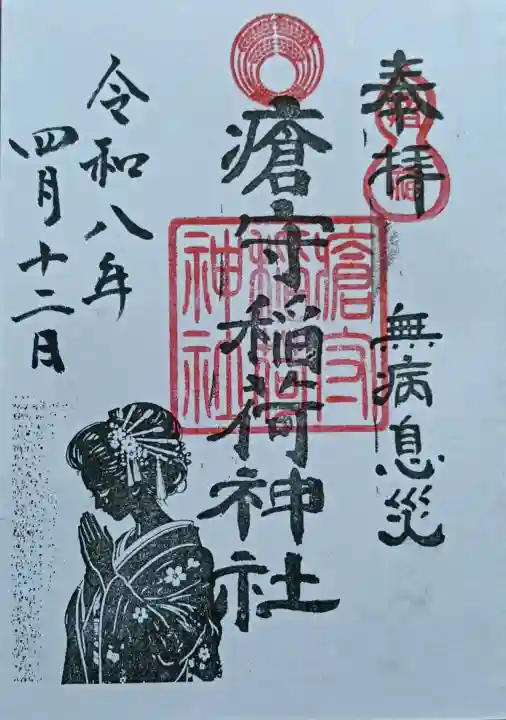 奉拝
無病息災
瘡守稲荷神社
瘡守稲荷神社
令和八年
四月十二日